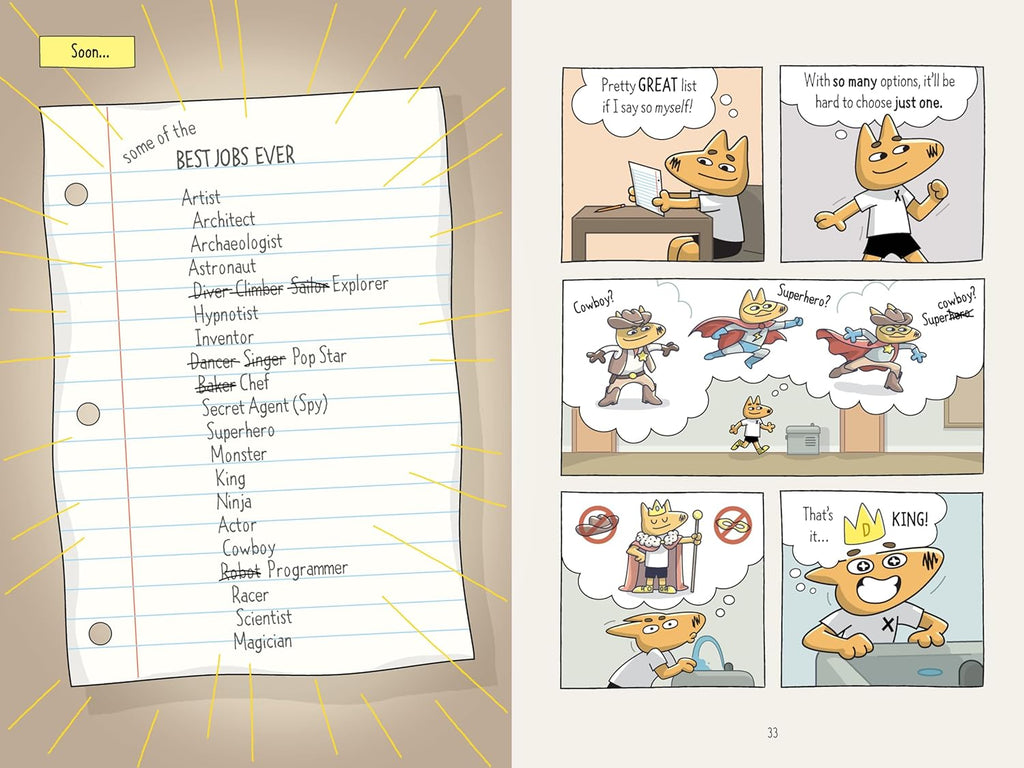 Soon...
some of the
BEST JOBS EVER
Artist
Architect
Archaeologist
Astronaut
Diver Climber Sailor Explorer
Hypnotist
Inventor
Dancer Singer Pop Star
Baker Chef
Secret Agent (Spy)
Superhero
Monster
King
Ninja
Actor
Cowboy
Robot Programmer
Racer
Scientist
Magician
Pretty GREAT list
if I say so myself!
With so many options, it'll be
hard to choose just one.
X
Cowboy?
Superhero?
cowboy?
Superhero
That's
it...
D
KING!
X
33